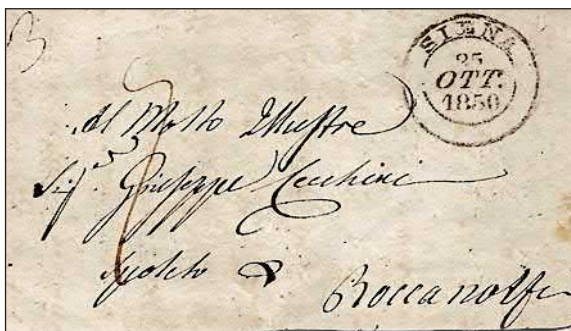 SIENA
25
OTT.
1850
Al Molto Illustre
Sig.re Giuseppe Cecchini
Roccanolfi